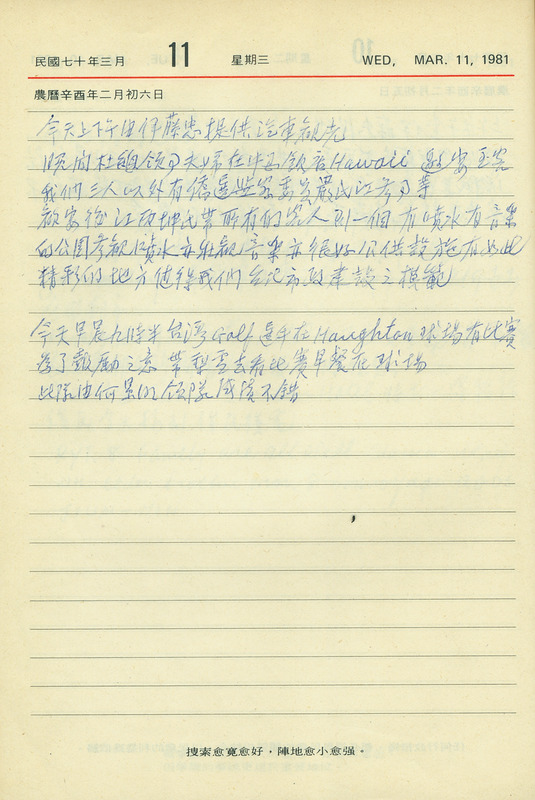 民國七十年三月 11 星期三 WED, MAR. 11, 1981
農曆辛酉年二月初六日
今天上下午由伊藤忠提供汽車觀光
晚間杜總領事夫婦在中西飯店Hawaii 邀宴 玉
我們三人以外有僑選監察委員嚴 江 等
歡宴後江 坤 帶所有的客人到一個有噴水有音樂
的公園參觀噴水亦壯觀音樂亦很好公供設施有如此
精彩的地方值得我們台北市政建設之模範
今天早晨九時半台湾Golf選手在Haughton球場有比賽
為了鼓勵之意 帶 去看比賽早餐在球場
此隊由何 領隊成績不錯
搜索愈寬愈好，陣地愈小愈强。